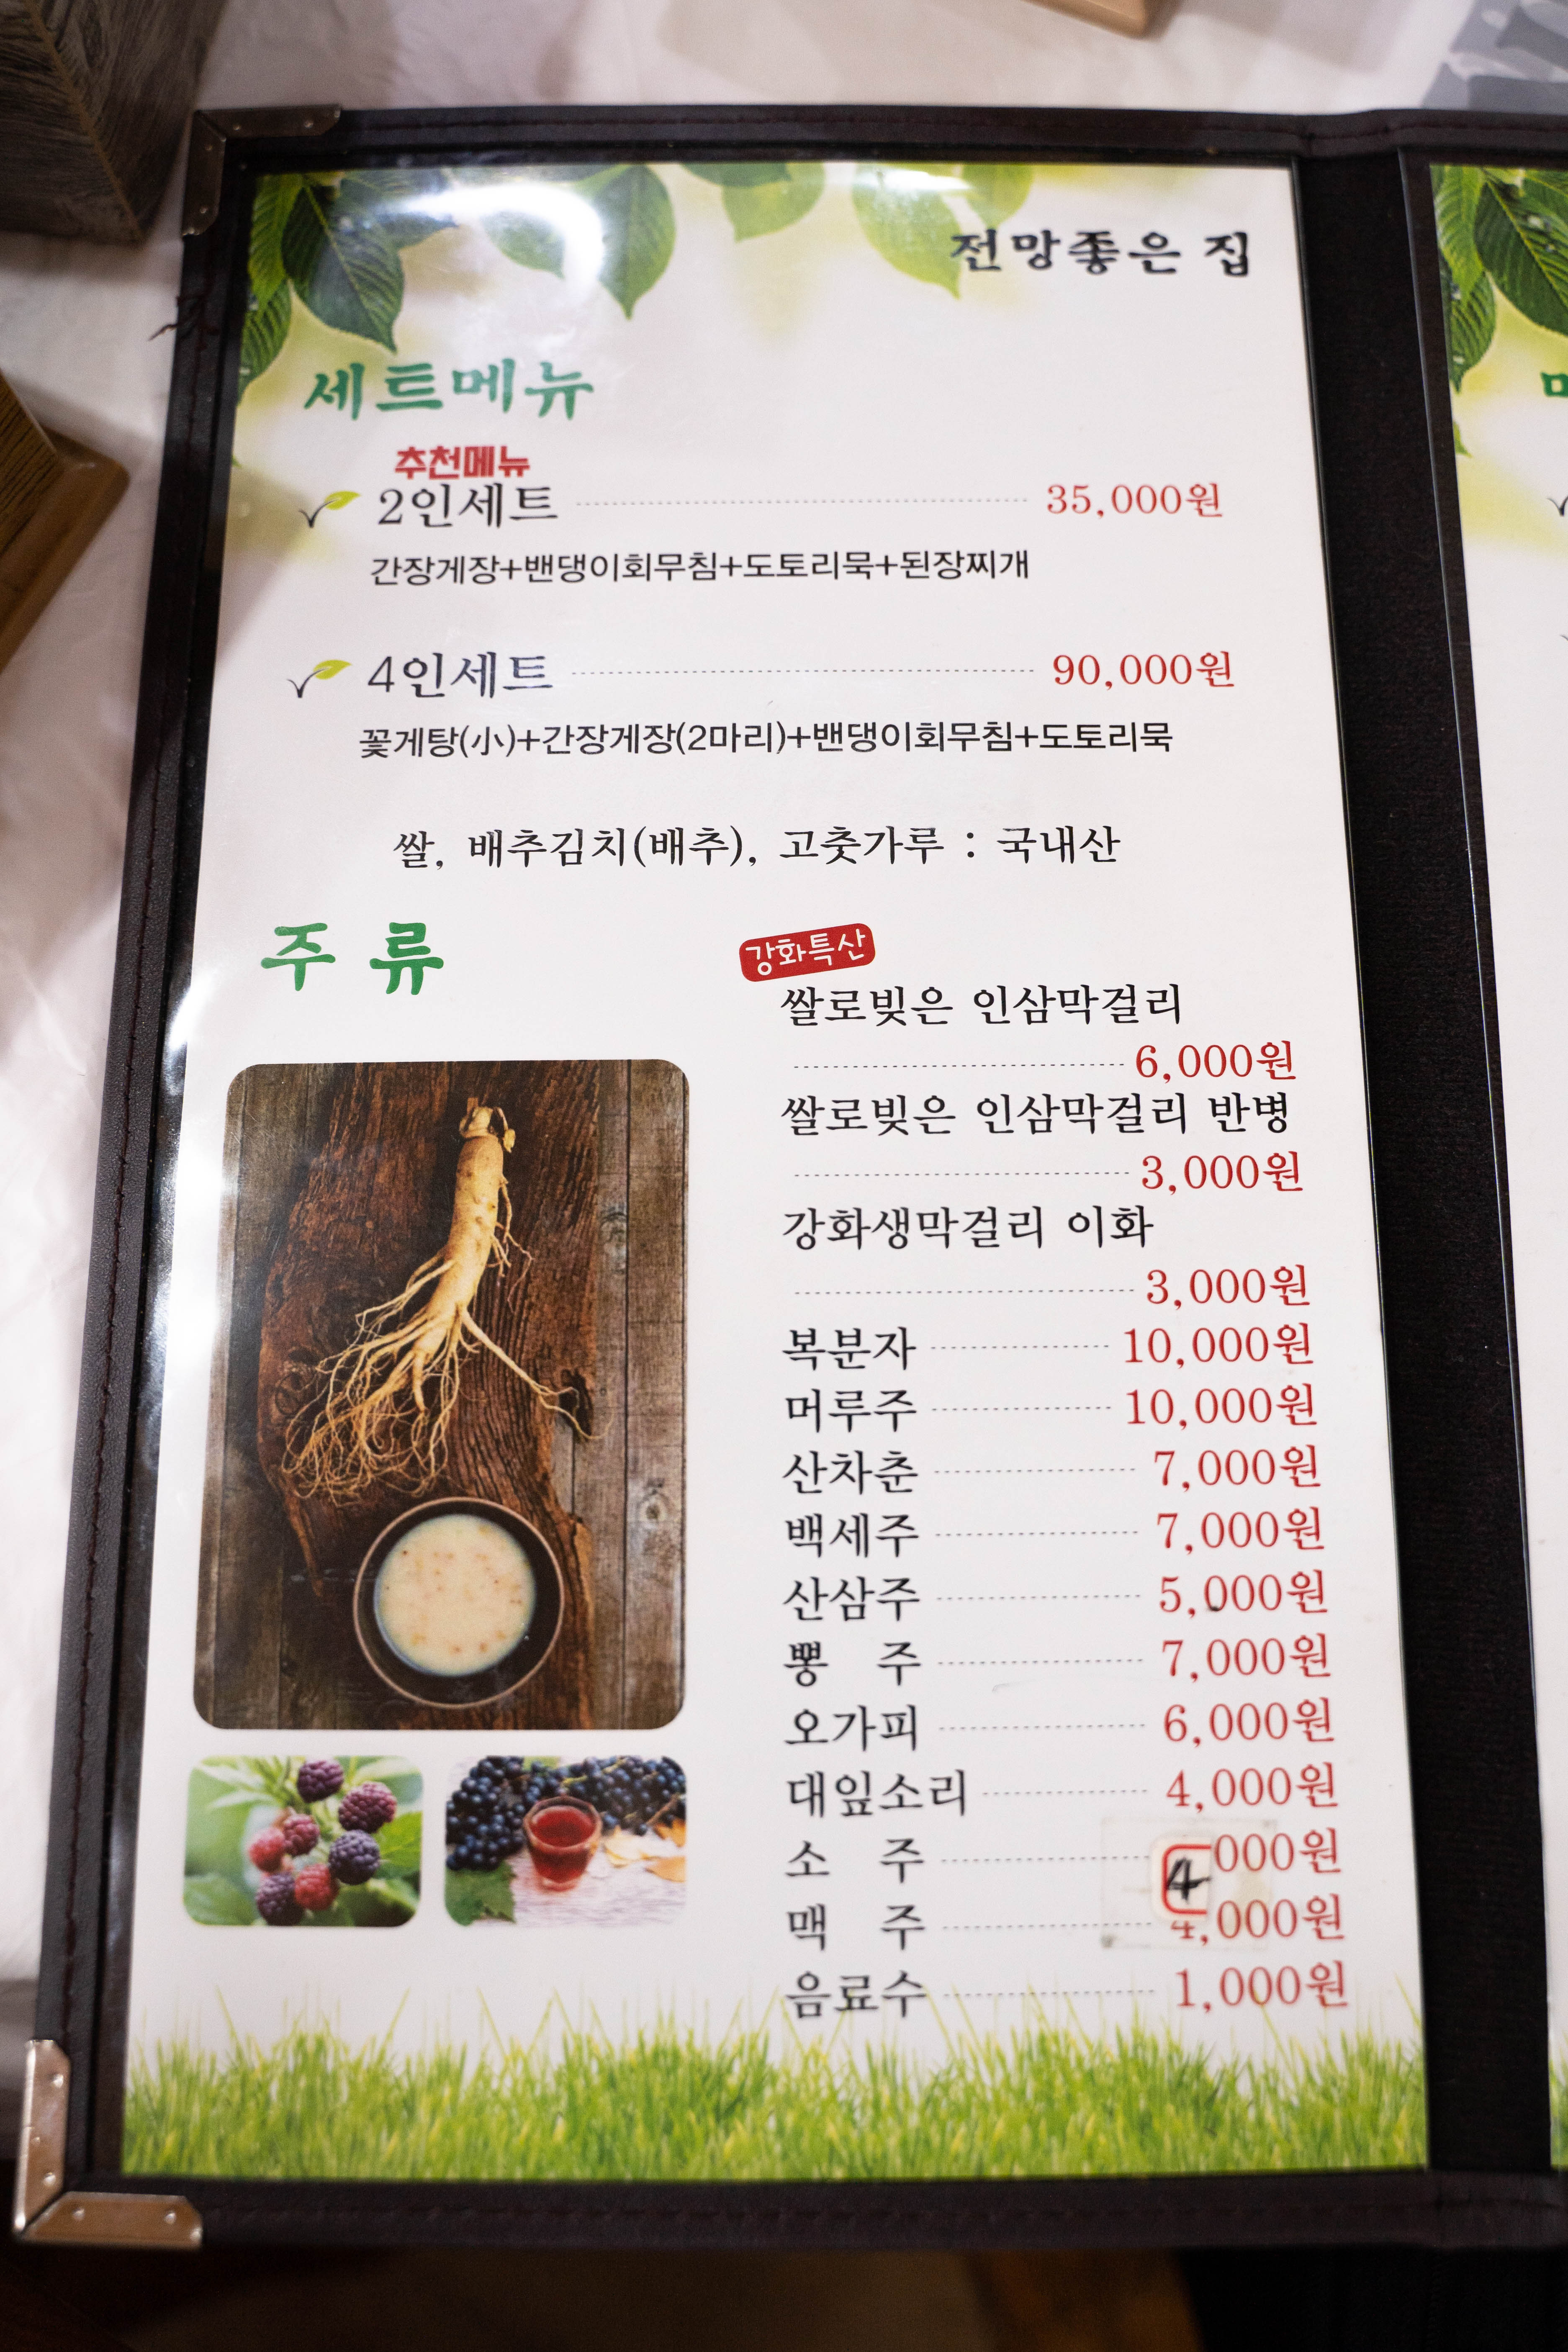 전망좋은 집
세트메뉴
추천메뉴
2인세트 35,000원
간장게장+밴댕이회무침+도토리묵+된장찌개
4인세트 90,000원
꽃게탕(小)+간장게장(2마리)+밴댕이회무침+도토리묵
쌀, 배추김치(배추), 고춧가루 : 국내산
주 류
강화특산
쌀로빚은 인삼막걸리
6,000원
쌀로빚은 인삼막걸리 반병
3,000원
강화생막걸리 이화
3,000원
복분자 10,000원
머루주 10,000원
산차춘 7,000원
백세주 7,000원
산삼주 5,000원
뽕 주 7,000원
오가피 6,000원
대잎소리 4,000원
소 주 4 000원
맥 주 4,000원
음료수 1,000원